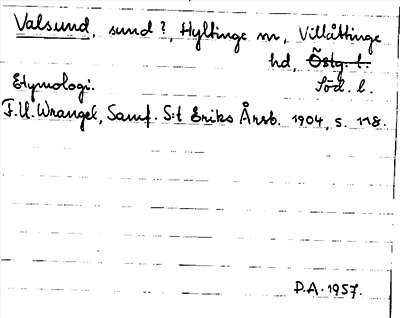 Valsund, sund?, Hyltinge sn, Villåttinge
hd, Östg. l.
Söd. l.
Etymologi.
F.U. Wrangel, Samf. S:t Eriks Årsb. 1904, s. 118.
D.A. 1957.